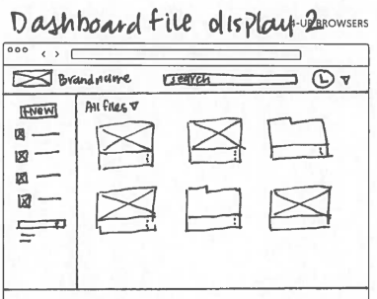 Dashboard file display 2
4-UP BROWSERS
Brandname
search
L
+New
All files